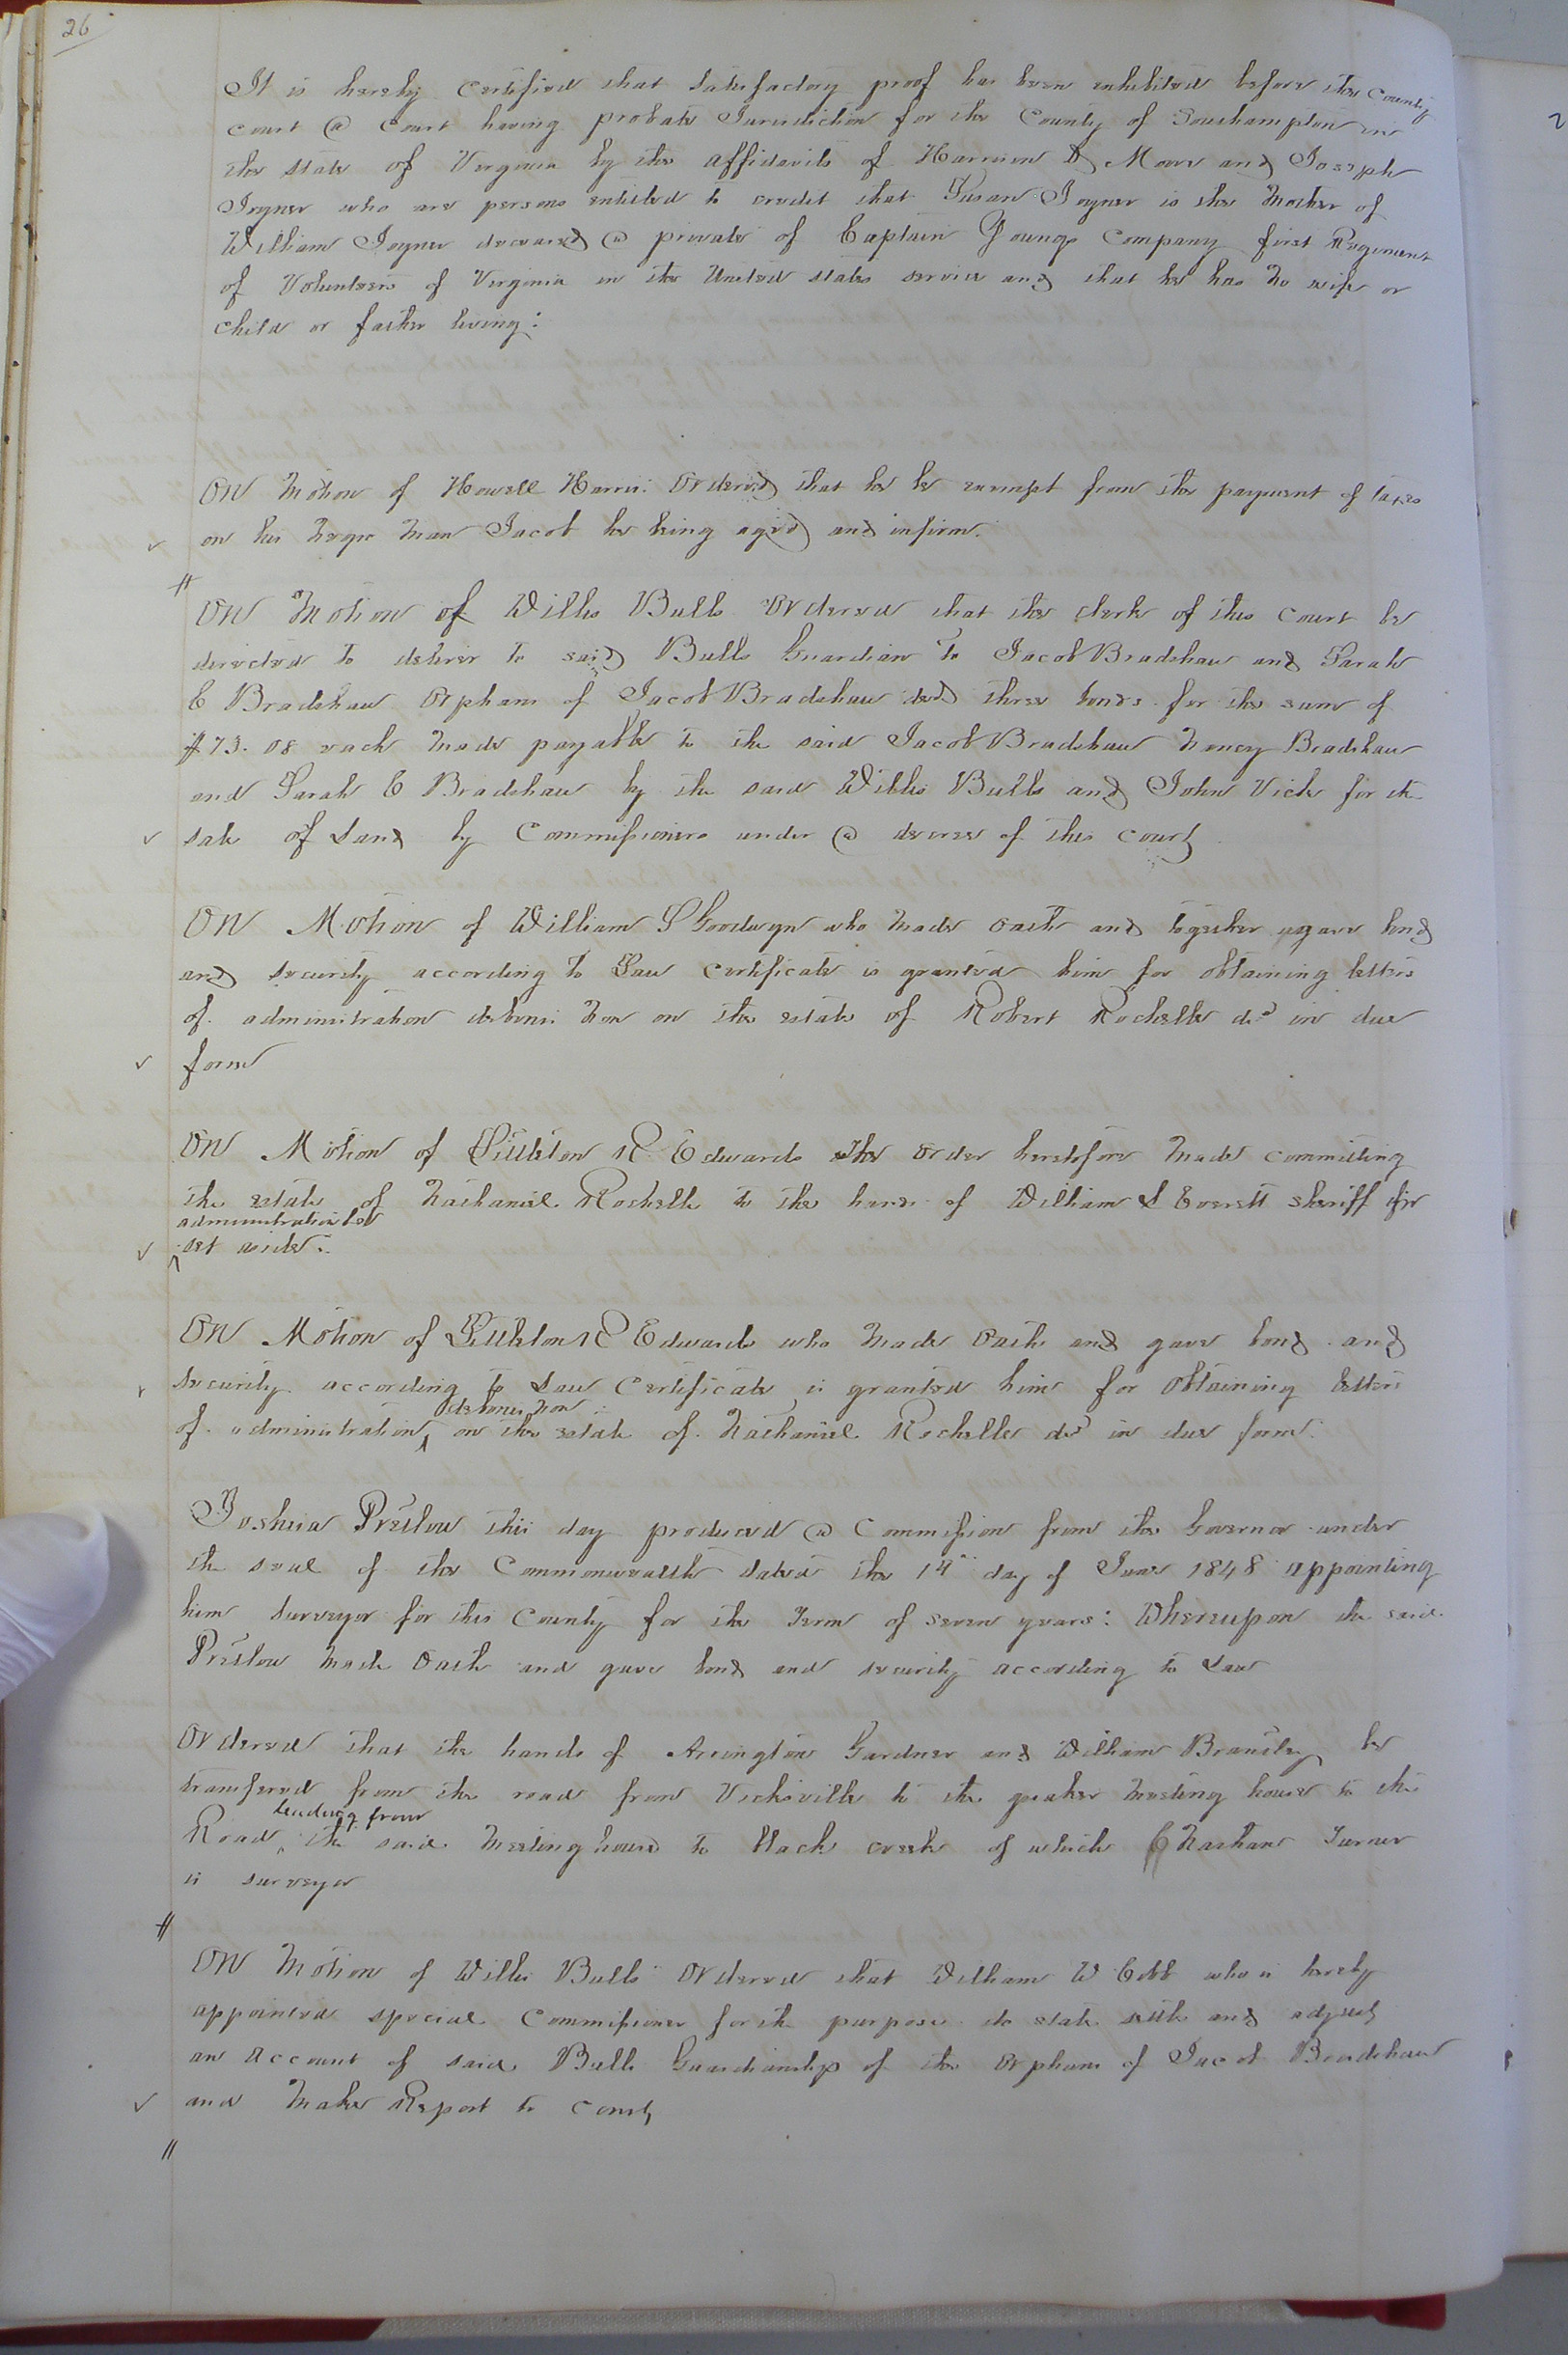 26
It is hereby certified that satisfactory proof has been exhibited before the County
court @ court having probate Jurisdiction for the County of Southampton in
the state of Virginia by the affidavits of Harrison D Moore and Joseph
Joyner who are persons entitled to credit that Susan Joyner is the Mother of
William Joyner deceased @ private of Captain Youngs company first Regiment
of Volunteers of Virginia in the United states service and that he has no wife or
child or father living:
On Motion of Howell Harris Ordered that he be exempt from the payment of taxes
on his negro man Jacob he being aged and infirm.
On Motion of Willis Bulls Ordered that the clerk of this court be
directed to deliver to said Bulls Guardian to Jacob Bradshaw and Sarah
E Bradshaw Orphans of Jacob Bradshaw decd three bonds for the sum of
$73.08 each made payable to the said Jacob Bradshaw Nancy Bradshaw
and Sarah E Bradshaw by the said Willis Bulls and John Vick for the
sale of Land by Commissioners under @ decree of this court
On Motion of William S Goodwyn who made oath and together gave bond
and security according to Law certificate is granted him for obtaining letters
of administration debonis non on the estate of Robert Rochelle decd in due
form
On Motion of Littleton R Edwards the order heretofore made committing
the estate of Nathaniel Rochelle to the hands of William S Everett sheriff for
administration be
set aside.
On Motion of Littleton R Edwards who made Oath and gave bond and
security according to Law Certificate is granted him for obtaining letters
debonis non
of administration on the estate of Nathaniel Rochelle decd in due form.
Joshua Pretlow this day produced @ Commission from the Governor under
the seal of the Commonwealth dated the 14th day of June 1848 appointing
him surveyor for this County for the Term of seven years: Whereupon the said
Pretlow made Oath and gave bond and security according to Law
Ordered that the hands of Arrington Gardner and William Brantley be
transfered from the road from Vicksville to the quaker meeting house to the
leading from
Road the said meeting house to black creek of which Nathan Turner
is surveyor
On Motion of Willis Bulls Ordered that William W Cobb who is hereby
appointed special Commissioner for the purpose do state settle and adjust
an account of said Bulls Guardianship of the Orphans of Jacob Bradshaw
and make Report to court